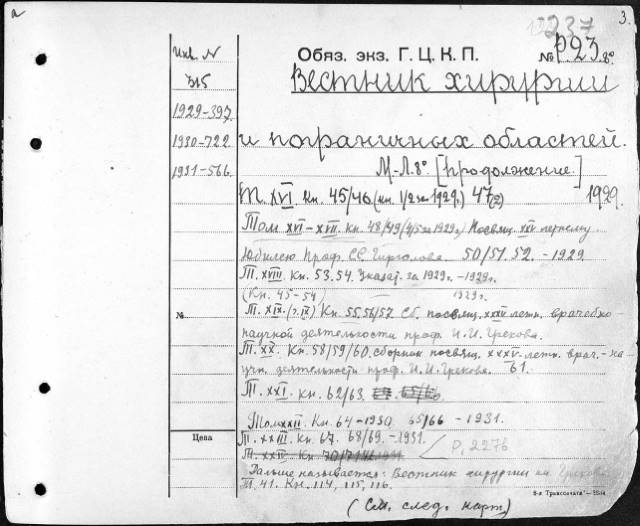 а
237
3.
Инв. N
315
Обяз. экз. Г. Ц. К. П.
№ P.23.8°
Вестник хирургии
1929-397.
1930-722
и пограничных областей.
1931-566.
М-Л.8°. [Продолжение.]
Т. XVI. Кн. 45/46 (кн. 1/2 за 1929г.) 47(2) 1929.
Том XVI-XVII. Кн. 48/49 (4/5 за 1929г.) Посвящ. XXV летнему
юбилею Проф. С.С. Гирголова. 50/51. 52. - 1929
Т. XVIII. Кн. 53.54. Указат. за 1929г. - 1929г.
(Кн. 45-54) 1929г.
№
Т. XIX. (г. IX) Кн. 55,56/57. Сб. посвящ. XXXV летн. врачебно-
научной деятельности проф. И.И. Грекова.
Т. XX. Кн. 58/59/60. сборник посвящ. XXXV-летн. врач.-на
учн. деятельности проф. И.И. Грекова. 61.
Т. XXI. Кн. 62/63. 65/66
Том XXII. Кн. 64-1930. 65/66 - 1931.
Цена
Т. XXIII. Кн. 67. 68/69. - 1931.
P, 2276
Т. XXIV. Кн. 70/71
Дальше называется: Вестник хирургии им. Грекова
Т. 41. Кн. 114, 115, 116.
(См. след. карт.)